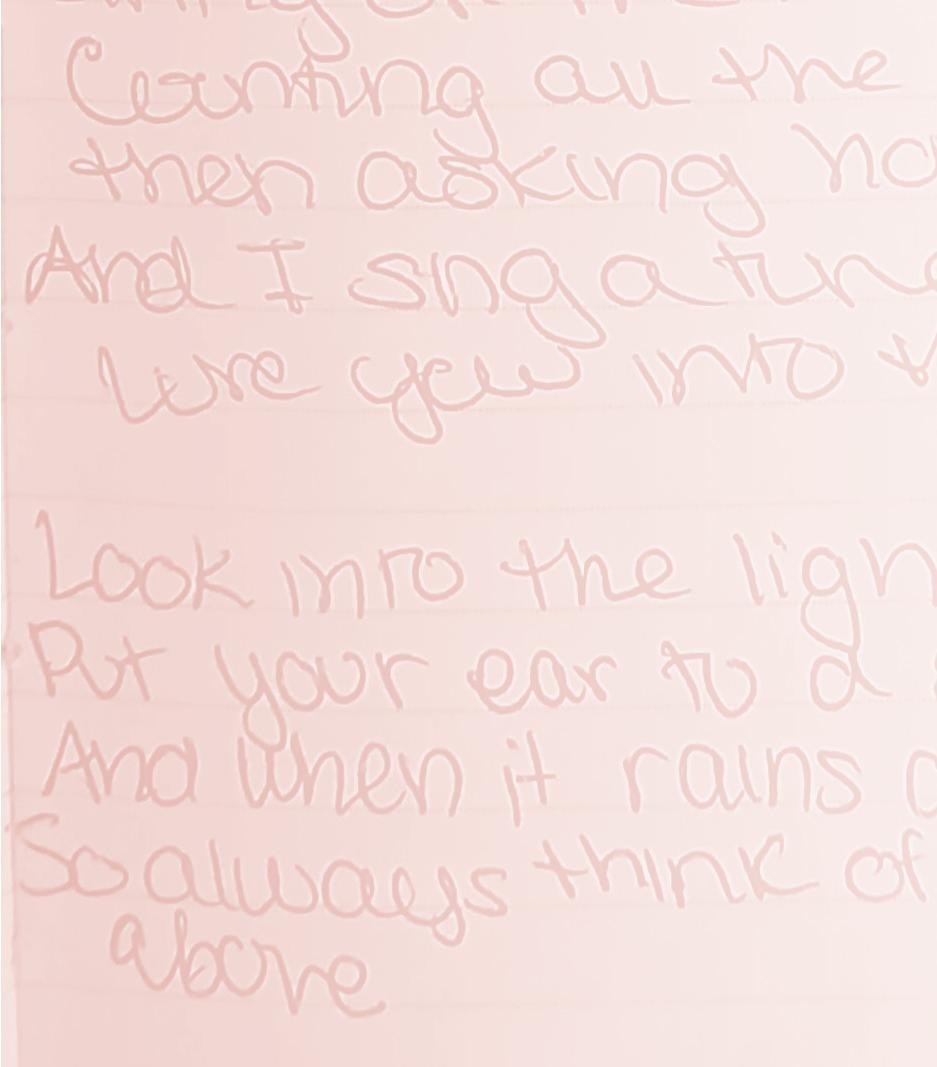 Counting all the
then asking
And I sing a
lure you into
Look into the
Put your ear to a
And when it rains
So always think of
above